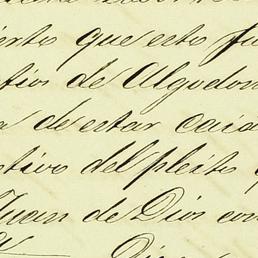 ierto que esto fu
tios de Algodon
a de estar caid
otivo del pleito
Juan de Dios con